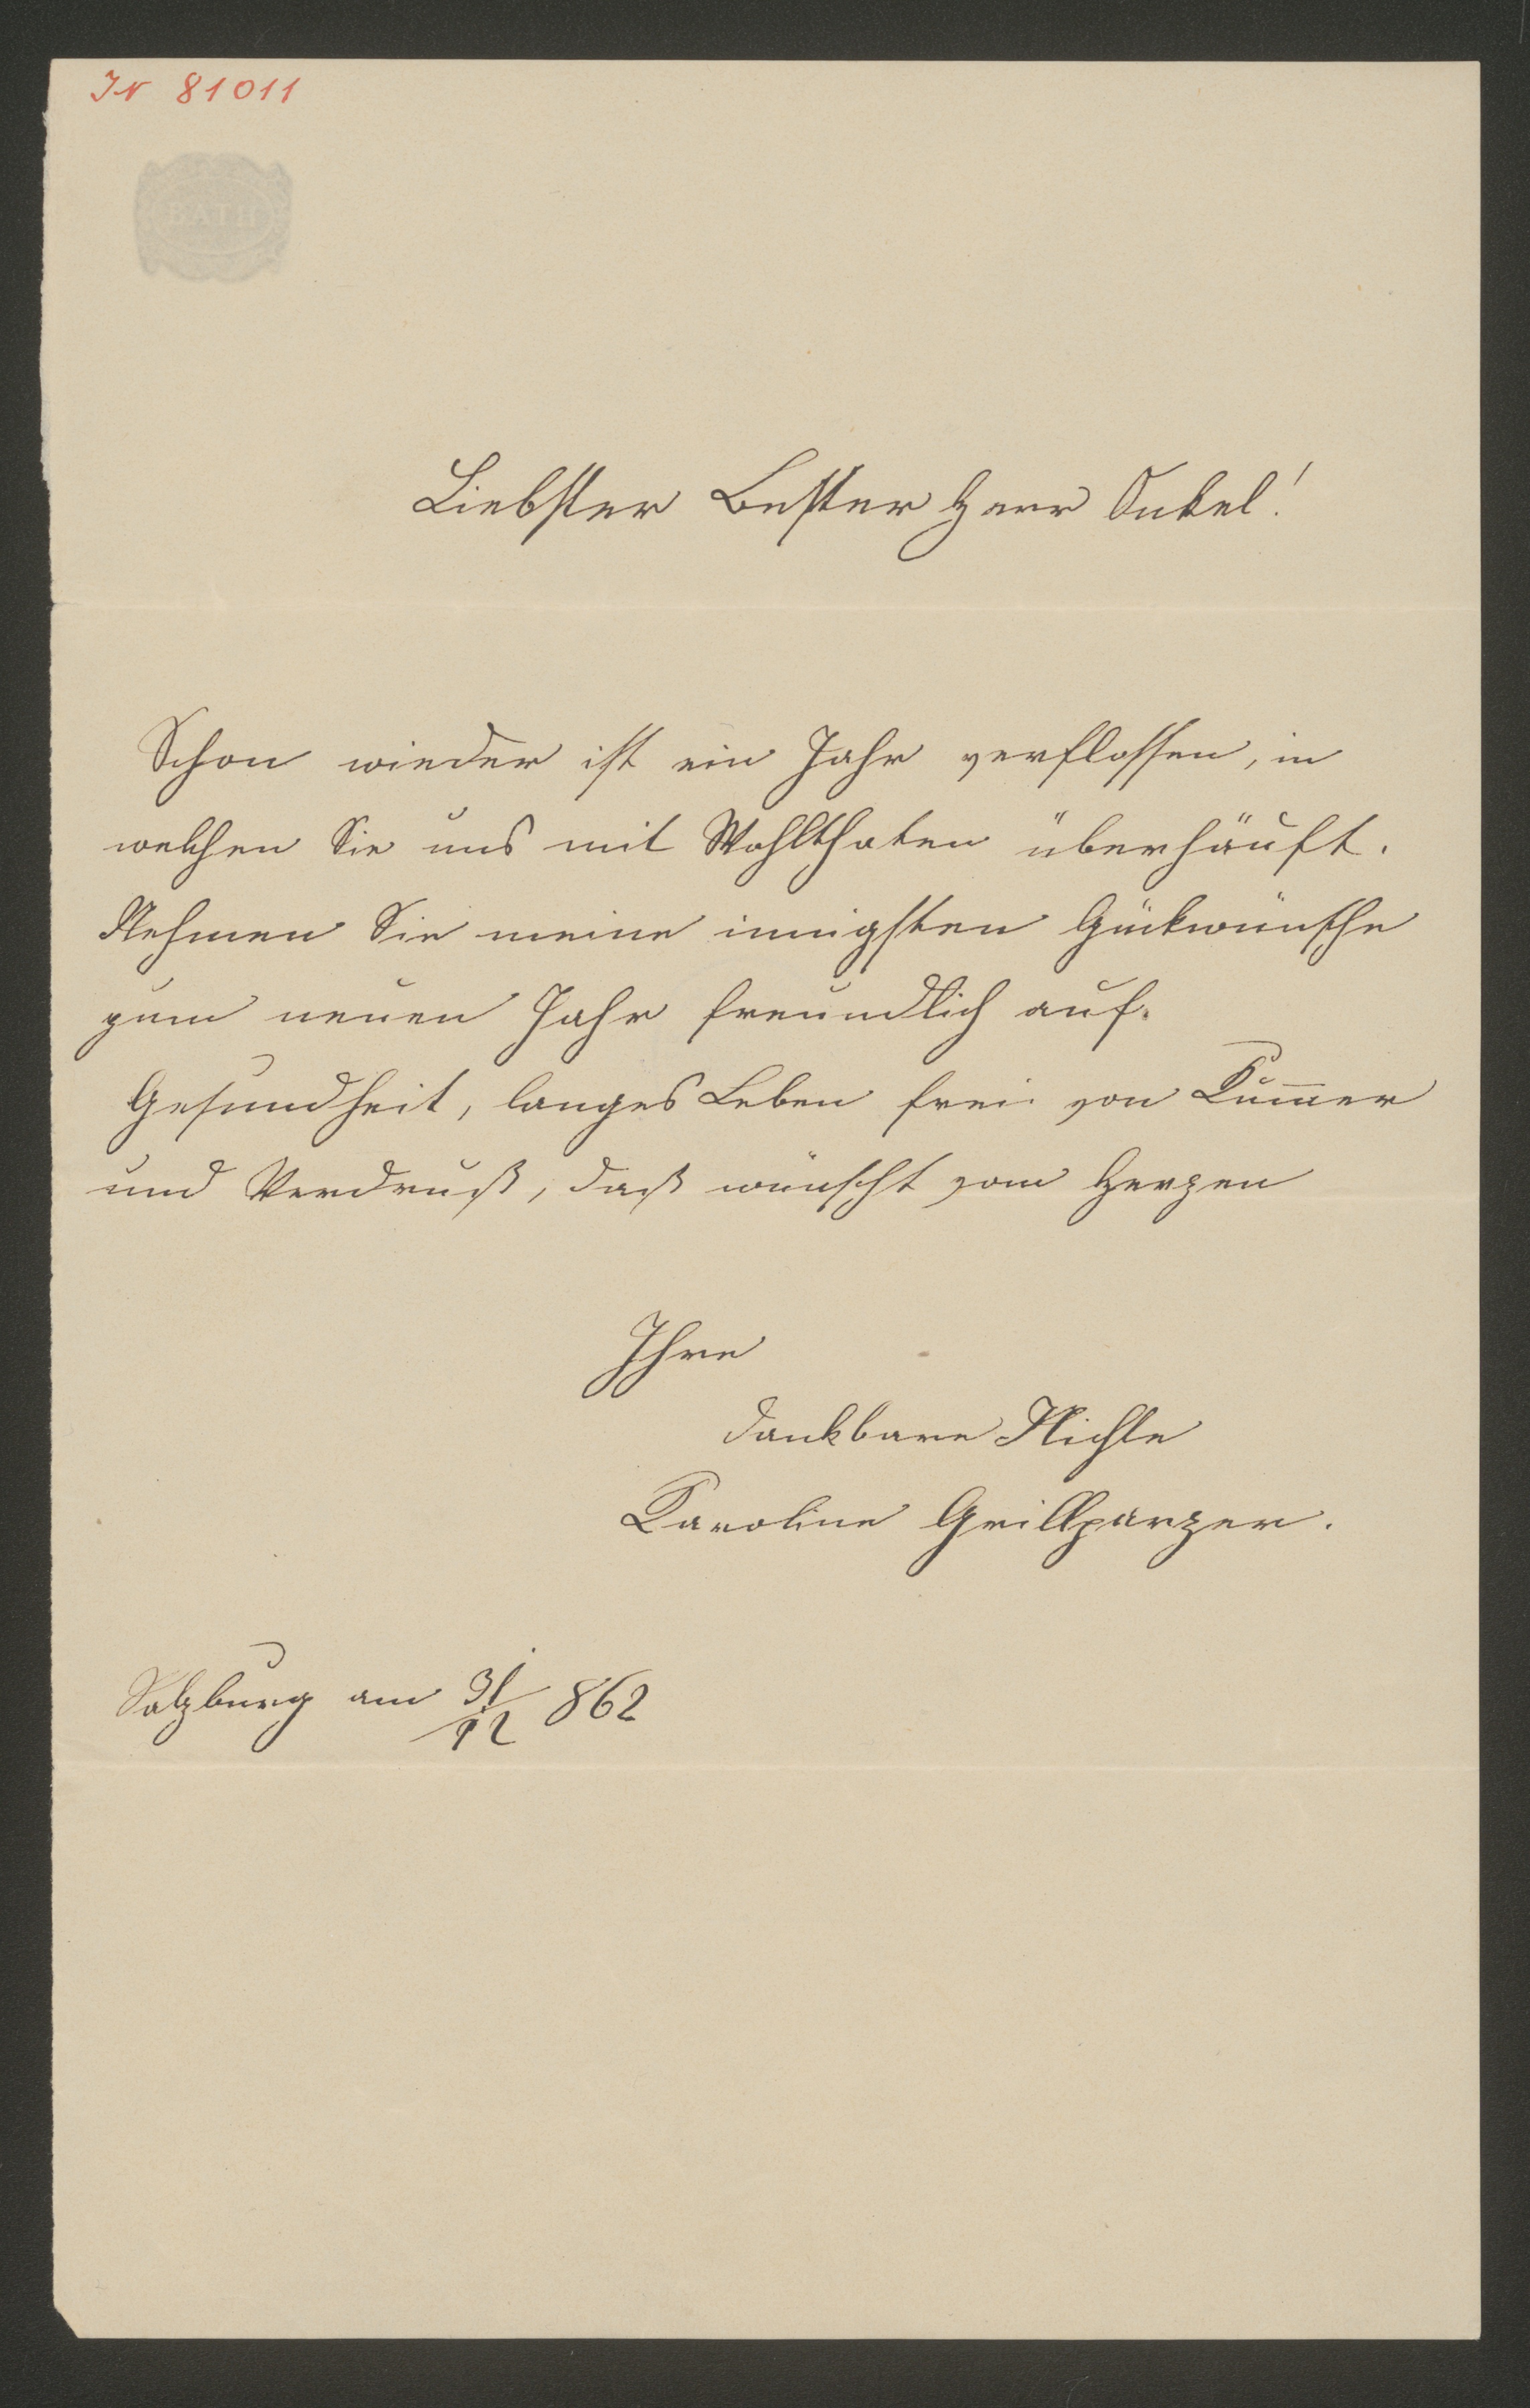 IN 81011
BATH
Liebster Bester Herr Onkel!
Schon wieder ist ein Jahr verflossen, in
welchen Sie uns mit Wohlthaten überhäuft.
Nehmen Sie meine innigsten Gückwünsche
zum neuen Jahr freundlich auf.
Gesundheit, langes Leben frei von Kum̅er
und Verdruß, daß wünscht vom Herzen
Ihre
dankbare Nichte
Karoline Grillparzer.
Salzburg am 31/12 862